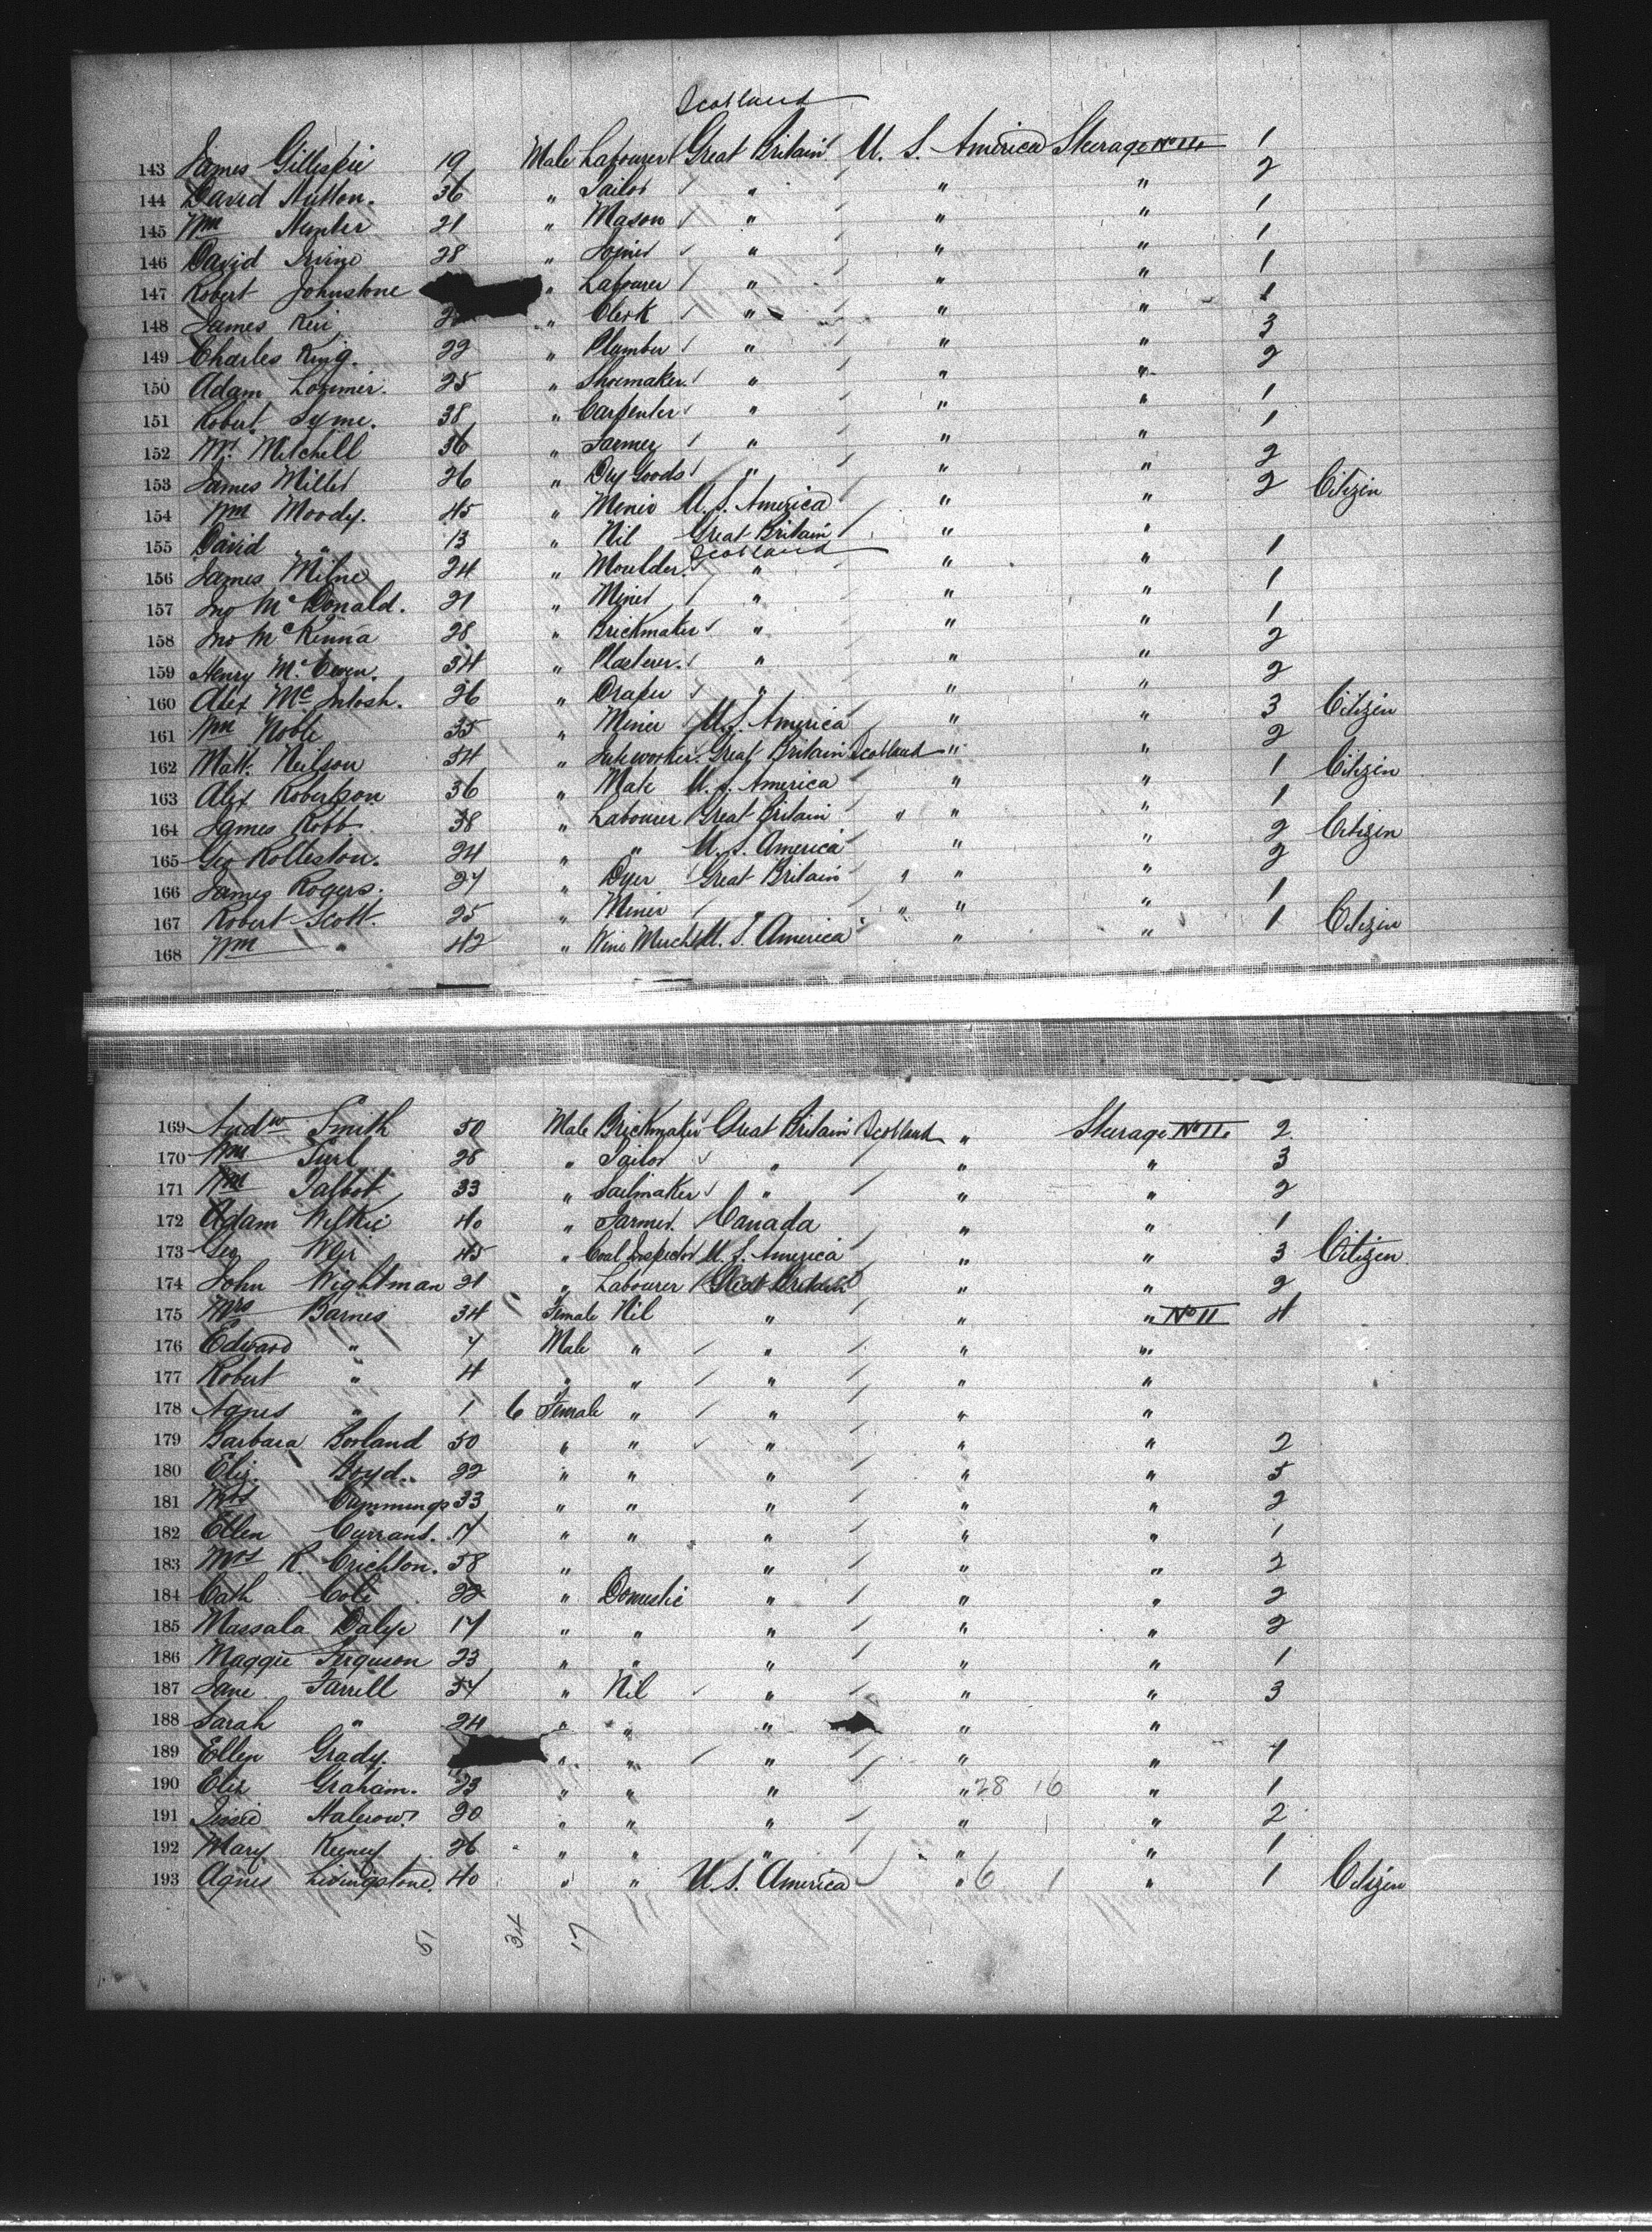 Scotland
143 James Gillespie 19 Male Labourer Great Britain U. S. America Steerage No 11 1
144 David Hutton. 36 " Tailor " " " 2
145 Wm Hunter 21 " Mason " " " 1
146 David Irvine 28 " Joiner " " " 1
147 Robert Johnstone " Labourer " " " 1
148 James Keir " Clerk " " " 1
149 Charles King. 22 " Plumber " " " 3
150 Adam Lorimer. 25 " Shoemaker. " " " 2
151 Robert Syme. 38 " Carpenter " " " 1
152 Mitchell 36 " Farmer " " " 1
153 James Miller 26 " Dry Goods " " " 2
154 Wm Moody. 45 " Miner U. S. America " " 2 Citizen
155 David " 13 " Nil Great Britain " "
Scotland
156 James Milne 24 " Moulder. " " " 1
157 Jno McDonald. 21 " Miner " " " 1
158 Jno McKenna 28 " Brickmaker " " " 1
159 Henry McEwen. 34 " Plasterer. " " " 2
160 Alex McIntosh. 26 " Draper " " " 2
161 Wm Noble 35 " Miner U. S. America " " 3 Citizen
162 Matt. Neilson 54 " Great Britain Scotland " " 2
163 Alex Robertson 36 " Mate U. S. America " " 1 Citizen
164 James Robb 38 " Labourer Great Britain " " " 1
165 Geo Rolleston. 24 " " U. S. America " " 2 Citizen
166 James Rogers. 27 " Dyer Great Britain " " " 2
167 Robert Scott. 25 " Miner " " " " 1
168 Wm " 42 " Wine Mercht U. S. America " " 1 Citizen
169 Andw Smith 50 Male Brickmaker Great Britain Scotland " Steerage No 11 2
170 Wm 28 " Tailor " " " 3
171 Wm Talbot 33 " Sailmaker " " " 2
172 Adam Wilkie 40 " Farmer. Canada " " 1
173 Geo Weir 45 " Coal Inspector U. S. America " " 3 Citizen
174 John Wightman 21 " Labourer Great Britain " " 2
175 Mrs Barnes 34 Female Nil " " " No 11 4
176 Edward " 7 Male " " " "
177 Robert " 4 " " " " "
178 Agnes " 1 6 Female " " " "
179 Barbara Borland 50 " " " " " 2
180 Eliz. Boyd.. 22 " " " " " 5
181 Mrs Cummings 33 " " " " " 2
182 Ellen Currans. 17 " " " " " 1
183 Mrs R. Crichton. 58 " " " " 2
184 Cath Cole 22 " Domestic " " " 2
185 Massala Dalye 17 " " " " " 2
186 Maggie Ferguson 23 " " " " " 1
187 Jane Farrill 57 " Nil " " " 3
188 Sarah " 24 " " " " "
189 Ellen Grady. " " " " " 1
190 Eliz Graham. 23 " " " " 28 16 " 1
191 Jessie 20 " " " " " 2
192 Mary 26 " " " " " 1
193 Agnes Livingstone. 40 " " U. S. America " 6 1 " 1 Citizen
51 34 17